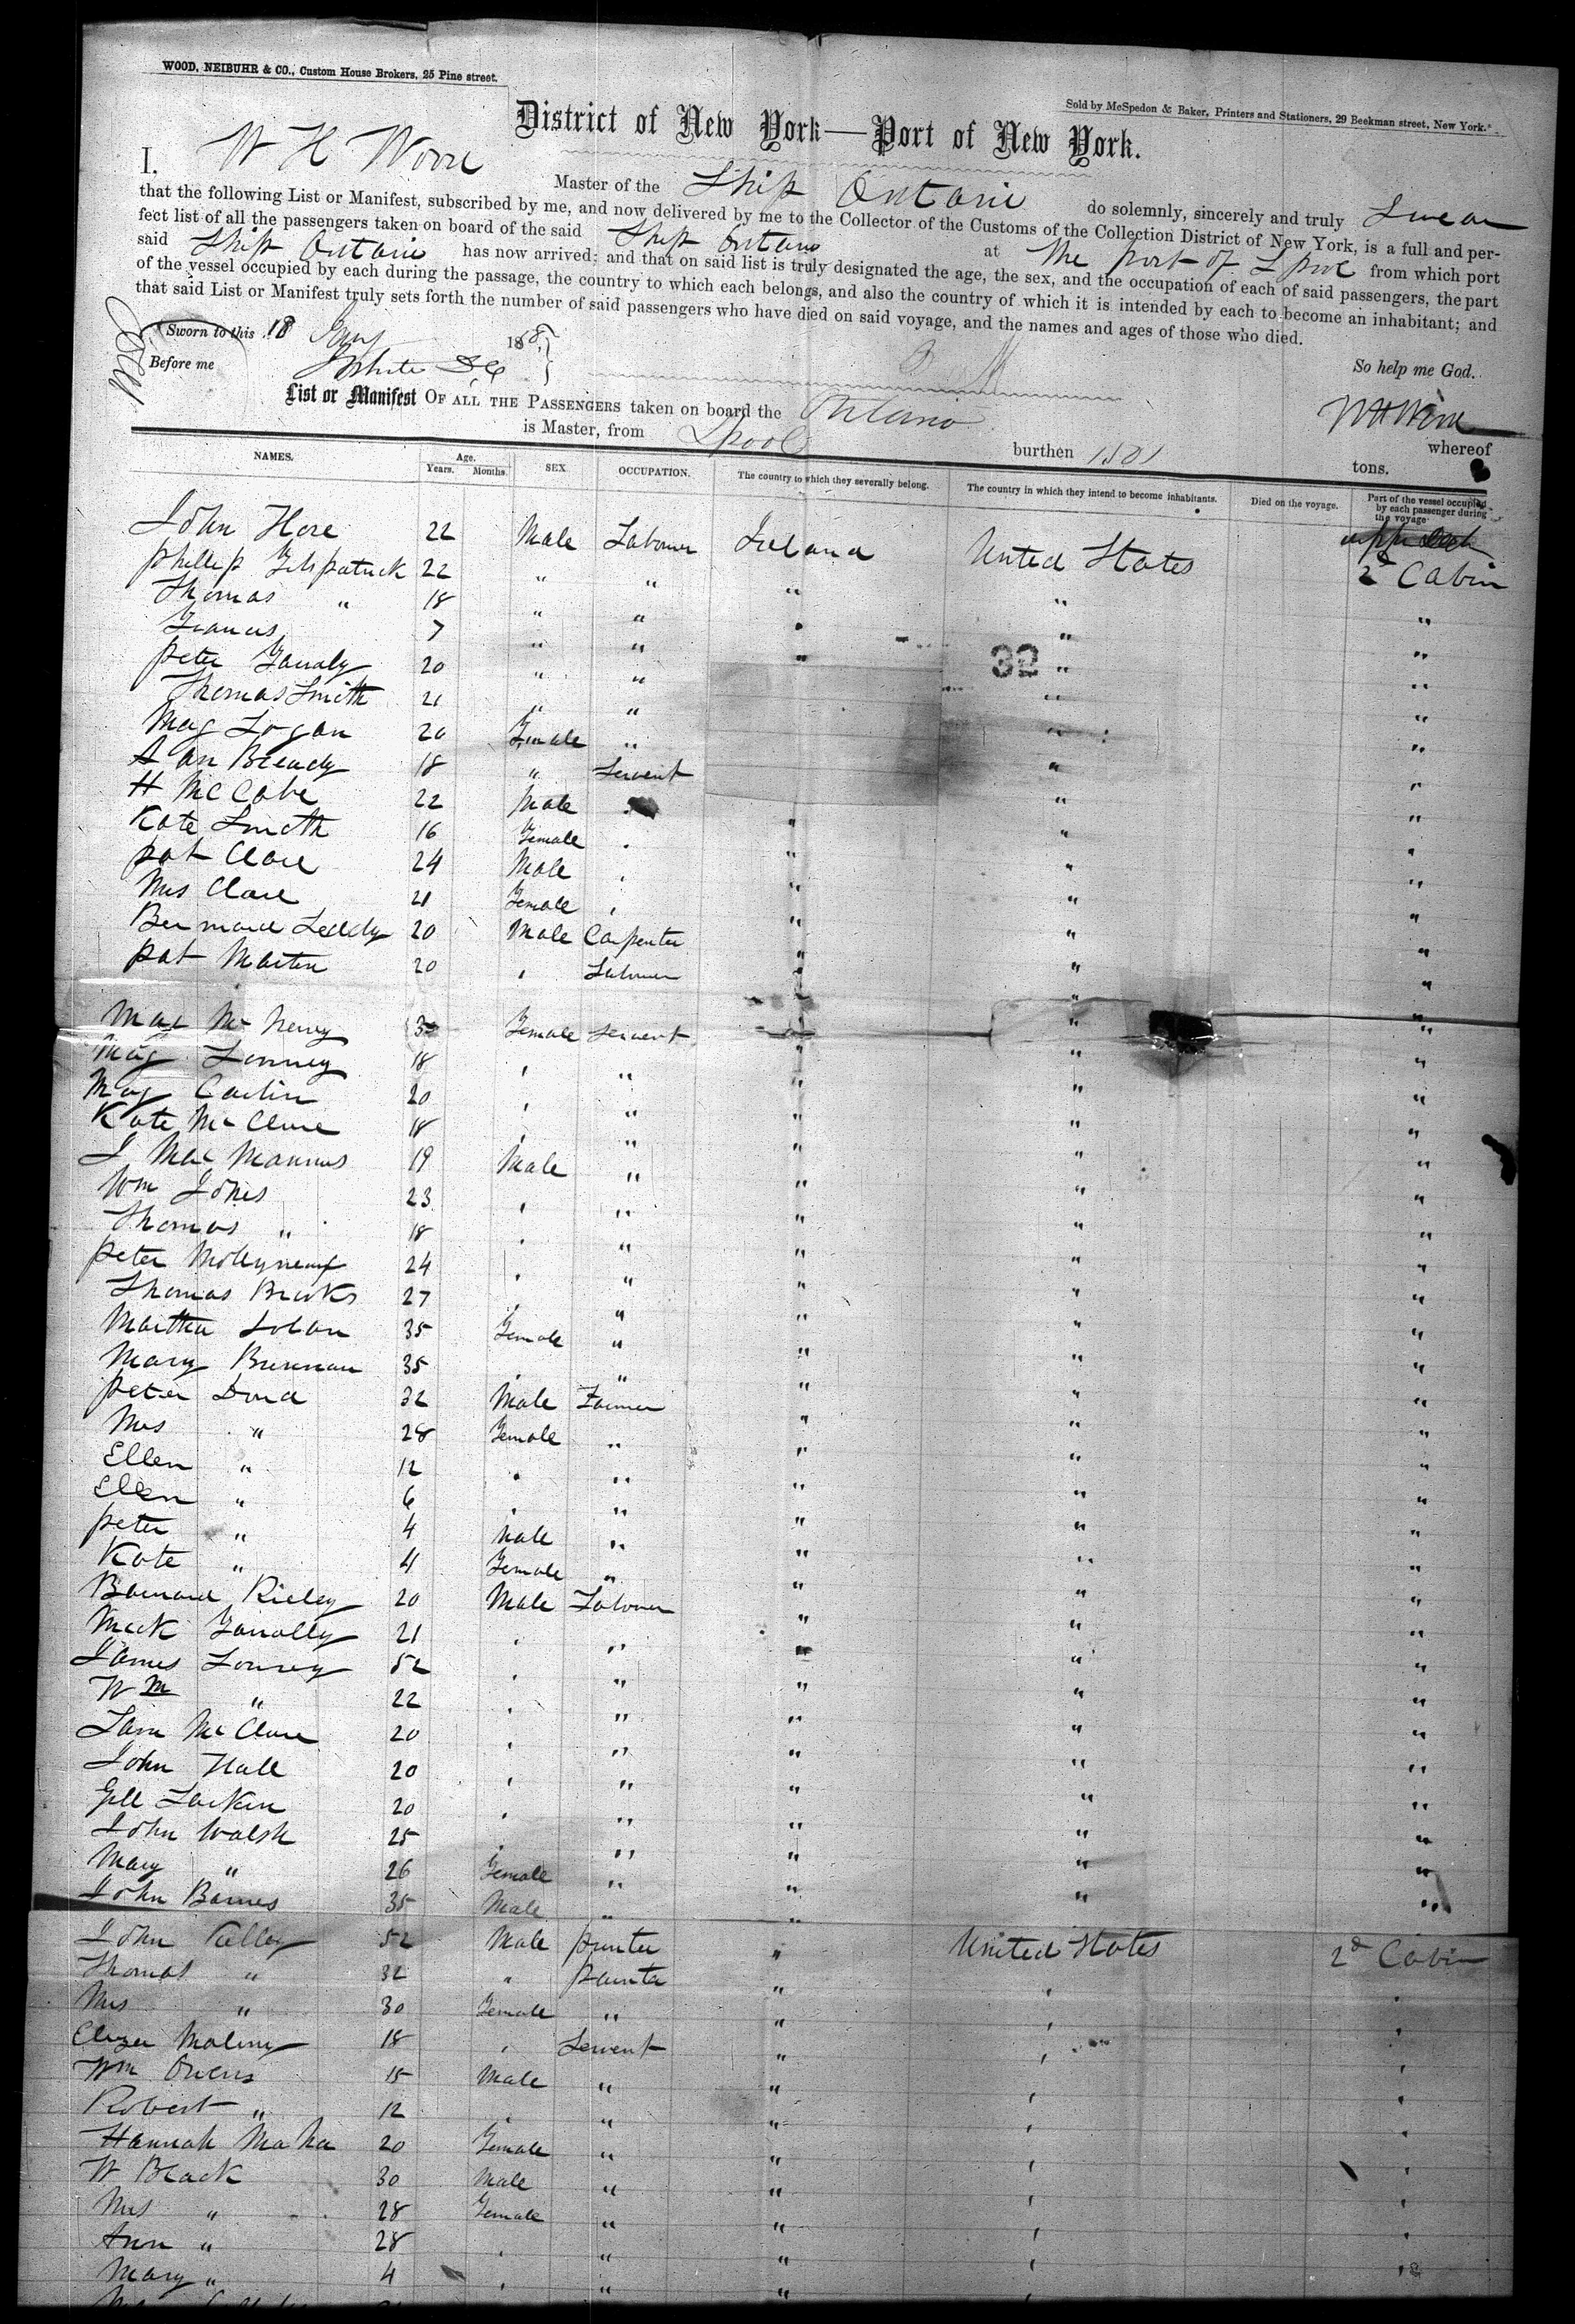 WOOD, NEIBUHR & CO., Custom House Brokers, 25 Pine street.
Sold by McSpedon & Baker, Printers and Stationers, 29 Beekman street, New York.
District of New York—Port of New York.
I, W H Wood Master of the Ship Ontario do solemnly, sincerely and truly Swear
that the following List or Manifest, subscribed by me, and now delivered by me to the Collector of the Customs of the Collection District of New York, is a full and per-
fect list of all the passengers taken on board of the said Ship Ontario at the port of Lpool from which port
said Ship Ontario has now arrived; and that on said list is truly designated the age, the sex, and the occupation of each of said passengers, the part
of the vessel occupied by each during the passage, the country to which each belongs, and also the country of which it is intended by each to become an inhabitant; and
that said List or Manifest truly sets forth the number of said passengers who have died on said voyage, and the names and ages of those who died.
Sworn to this 18 Jany 185
So help me God.
Before me
List or Manifest OF ALL THE PASSENGERS taken on board the Ontario whereof
is Master, from Lpool burthen 1501 tons.
NAMES. Age. Years. Months. SEX OCCUPATION. The country to which they severally belong. The country in which they intend to become inhabitants. Died on the voyage. Part of the vessel occupied by each passenger during the voyage
John Hore 22 Male Labourer Ireland United States
Phillip Fitzpatrick 22 " " " " 2d Cabin
Thomas " 18 " " " " "
Francis 7 " " " " "
32
Peter 20 " " " "
Thomas Smith 21 " " " "
Mag Logan 20 Female " " "
Ann Bready 18 " Servent " "
H McCabe 22 Male " "
Kate Smith 16 Female " " "
Pat Clare 24 Male " " "
Mrs Clare 21 Female " " "
Bernard Leddy 20 Male Carpenter " " "
Pat Martin 20 " Labourer " " "
Female Servent " " "
Mag 18 " " " " "
Mag Carlin 20 " " " " "
Kate McClure 18 " " " " "
J MacManus 19 Male " " " "
Wm Jones 23 " " " " "
Thomas " 18 " " " " "
Peter Mollyneux 24 " " " " "
Thomas Brooks 27 " " " " "
Martha 35 Female " " " "
Mary Brennan 35 " " " " "
Peter Doud 32 Male Farmer " " "
Mrs " 28 Female " " " "
Ellen " 12 " " " " "
Ellen " 6 " " " " "
Peter " 4 Male " " " "
Kate " 4 Female " " " "
Barnard Rieley 20 Male Labourer " " "
Mick 21 " " " " "
James 52 " " " " "
Wm " 22 " " " " "
McClure 20 " " " " "
John Hall 20 " " " " "
Larkin 20 " " " " "
John Walsh 25 " " " " "
Mary " 26 Female " " " "
John Barnes 35 Male " " " "
John Kelley 52 Male Printer " United States 2d Cabin
Thomas " 32 " Painter " " "
Mrs " 30 Female " " " "
Eliza 18 " Servent " " "
Wm Owens 15 Male " " " "
Robert " 12 " " " " "
Hannah 20 Female " " " "
W Black 30 Male " " " "
Mrs " 28 Female " " " "
Ann " 28 " " " " "
Mary " 4 " " " " "